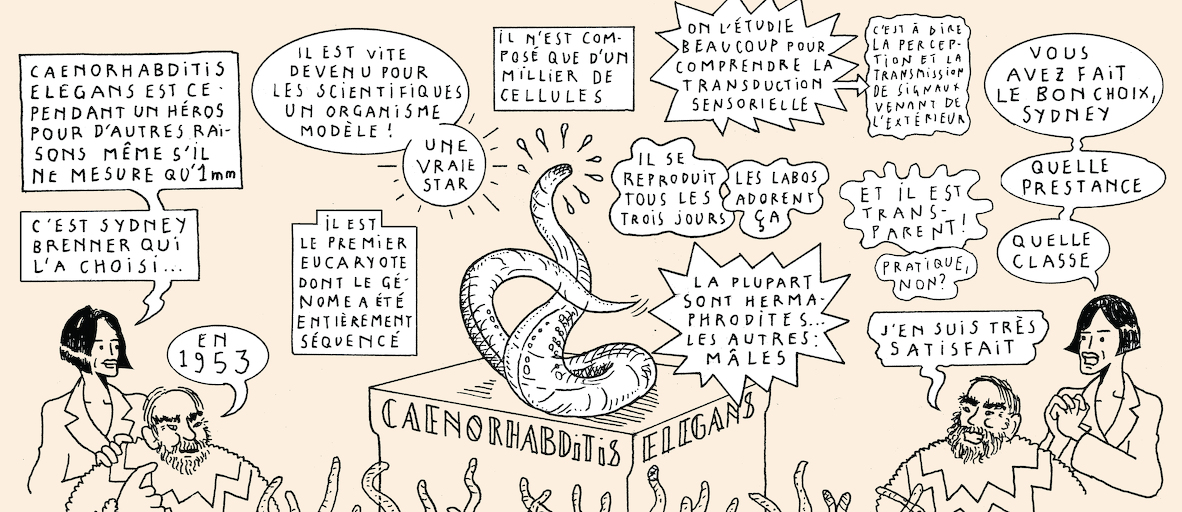 CAENORHABDITIS
ELEGANS EST CE-
PENDANT UN HÉROS
POUR D'AUTRES RAI-
SONS MÊME S'IL
NE MESURE QU'1mm
C'EST SYDNEY
BRENNER QUI
L'A CHOISI...
EN
1953
IL EST VITE
DEVENU POUR
LES SCIENTIFIQUES
UN ORGANISME
MODÈLE!
UNE
VRAIE
STAR
IL EST
LE PREMIER
EUCARYOTE
DONT LE GÉ-
NOME A ÉTÉ
ENTIÈREMENT
SÉQUENCÉ
IL N'EST COM-
POSÉ QUE D'UN
MILLIER DE
CELLULES
ON L'ÉTUDIE
BEAUCOUP POUR
COMPRENDRE LA
TRANSDUCTION
SENSORIELLE
C'EST À DIRE
LA PERCEP-
TION ET LA
TRANSMISSION
DE SIGNAUX
VENANT DE
L'EXTÉRIEUR
IL SE
REPRODUIT
TOUS LES
TROIS JOURS
LES LABOS
ADORENT
ÇA
LA PLUPART
SONT HERMA-
PHRODITES...
LES AUTRES:
MÂLES
ET IL EST
TRANS-
PARENT!
PRATIQUE,
NON?
VOUS
AVEZ FAIT
LE BON CHOIX,
SYDNEY
QUELLE
PRESTANCE
QUELLE
CLASSE
J'EN SUIS TRÈS
SATISFAIT
CAENORHABDITIS ELEGANS